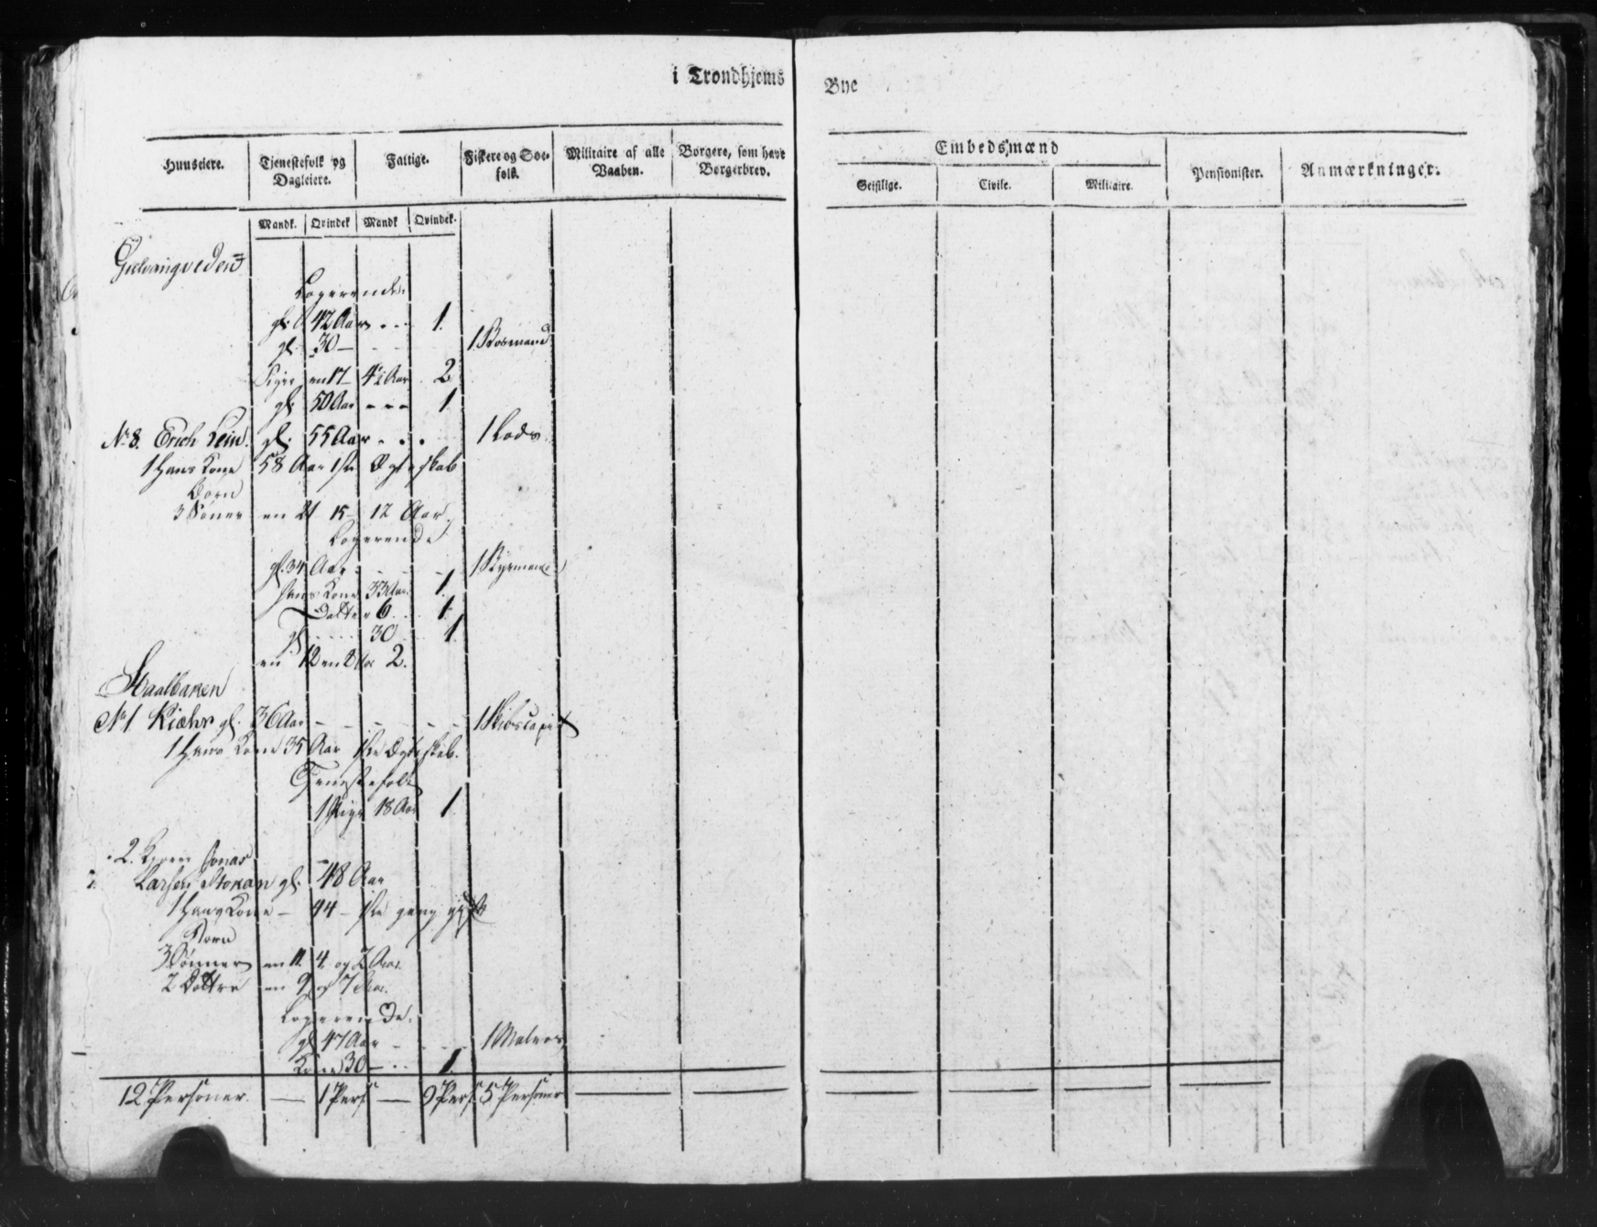 i Trondhjems Bye
Huuseiere.
Tjenestefolk og Dagleiere.
Fattige.
Fiskere og Søe-folk.
Militaire af alle Vaaben.
Borgere, som have Borgerbrev.
Embedsmænd
Geistlige.
Civile.
Militaire.
Pensionister.
Anmærkninger.
Mandk. Qvindek Mandk Qvindek.
Logerende
gl. 42 Aar - - - 1.
gl. 30 - - - 1
Piger en 17 - 42 Aar 2
gl. 50 Aar - - - 1
No 8. Erich Lein. gl. 55 Aar - - - 1 Lods
1 Hans Kone 58 Aar 1ste Ægteskab
Børn
3 Sønner en 21 15 12 Aar
Logerende
gl. 34 Aar - - - 1 Styrmand
Hans Kone 33 Aar. 1
Datter 6 - - 1
gl. - - - 30 - - 1
en 12 en 8 Aar 2.
No 1 Kiæhr gl. 36 Aar - - - - - 1 Skibscapit
1 Hans Kone 35 Aar 1ste Ægteskab.
Tjenestefolk
1 Pige 18 Aar 1
2. Jonas
Larsen Stokan gl. 48 Aar
1 Hans Kone - 44 - 1ste gang gift
Børn
3 Sønner en 11. 4 og 2 Aar.
2 Døttre en 9 og 7 Aar.
Logerende.
gl. 47 Aar - - - 1 Matros
Kone 30 - - - 1.
12 Personer - 1 Pers - 9 Pers 5 Personer - -